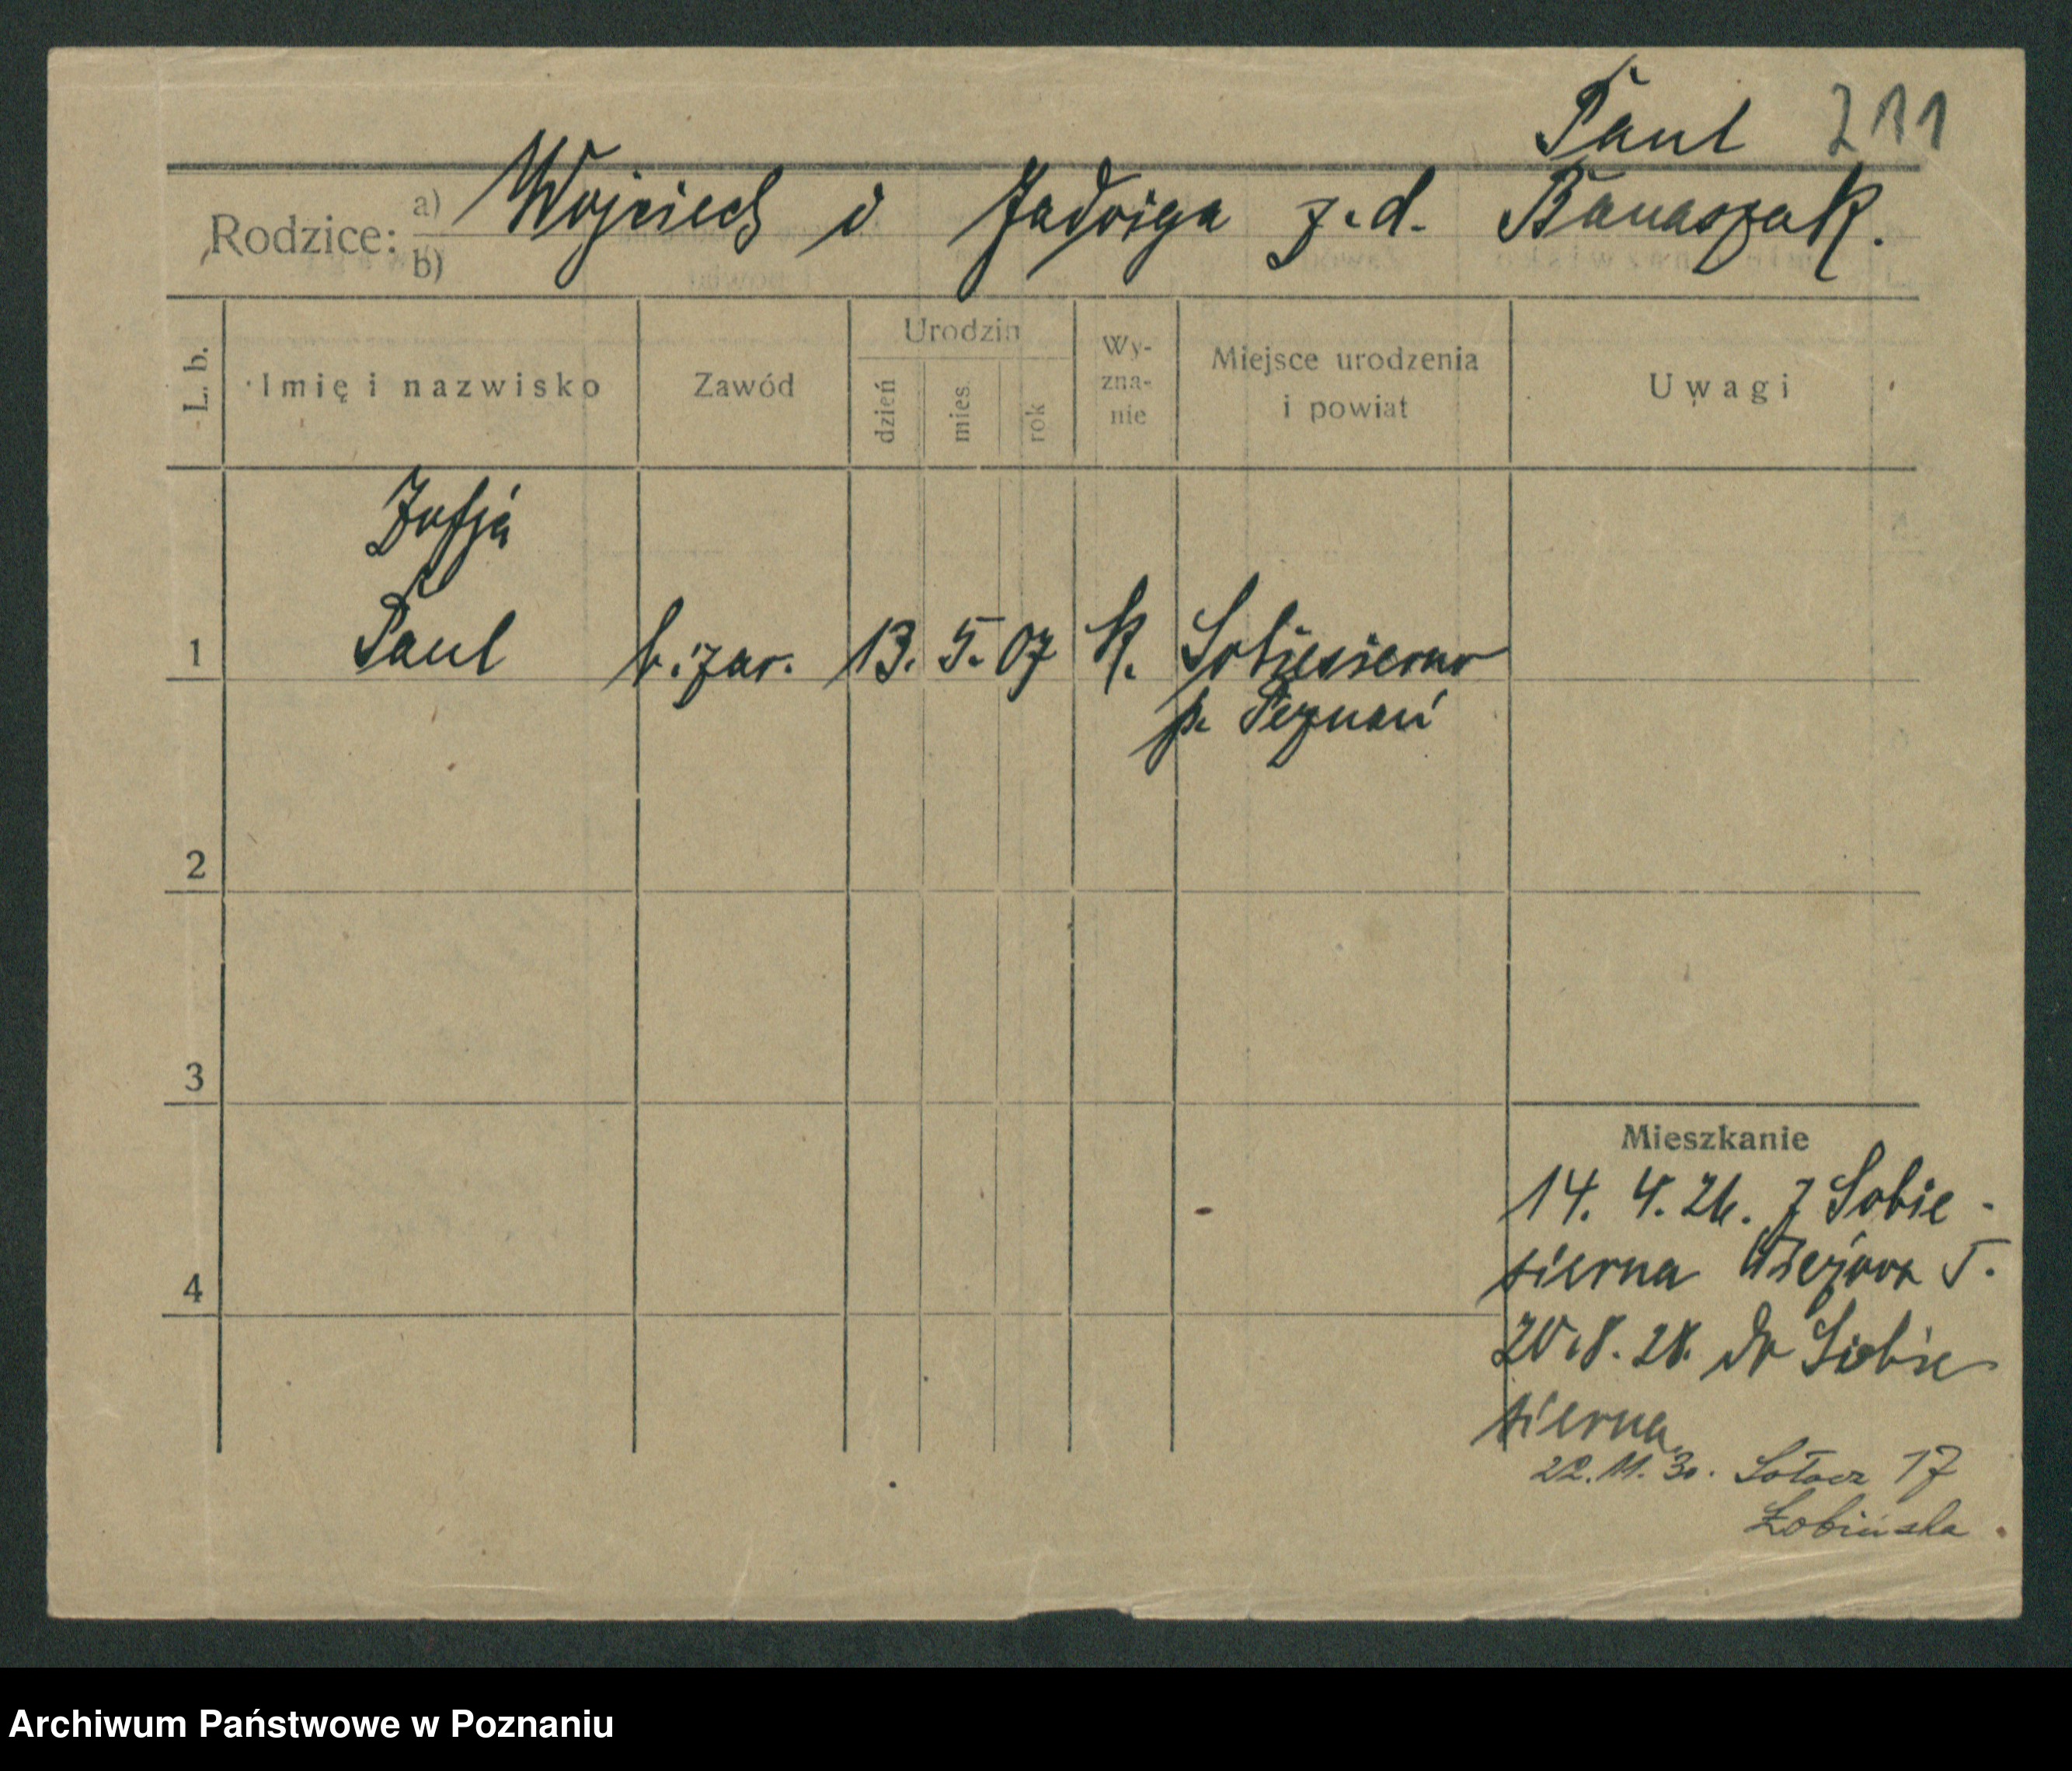 Paul 211
Rodzice: a) Wojciech i Jadwiga z.d. Banaszak.
b)
L. b.
Imię i nazwisko
Zawód
Urodzin
dzień
mies.
rok
Wy-
zna-
nie
Miejsce urodzenia
i powiat
Uwagi
Zofja
1 Paul b. zar. 13. 5. 07 k. Sobiesierno
p. Poznań
2
3
4
Mieszkanie
14. 4. 26. z Sobie-
sierna 5.
20.8.28. do Sobie
sierna
22.11.30. Sołacz 17
Żobińska
Archiwum Państwowe w Poznaniu